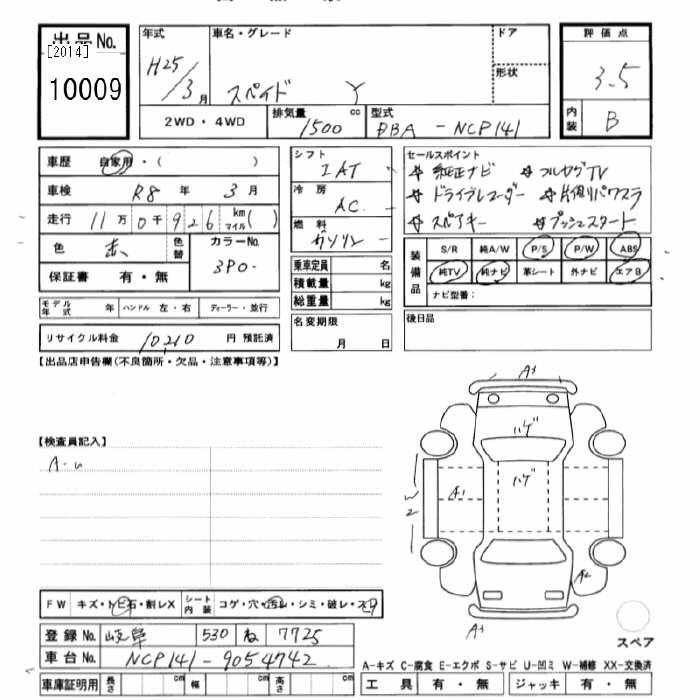 出品No. [2014] 10009
年式 H25/3月
車名・グレード スペイド Y
ドア
形状
2WD・4WD
排気量 1500 cc
型式 DBA-NCP141
評価点 3.5
内装 B
車歴 自家用・( )
車検 R8 年 3 月
走行 11万0千926 km マイル( )
色 赤 色替
カラーNo. 3P0-
保証書 有・無
モデル年式 年 ハンドル 左・右 ディーラー・並行
リサイクル料金 10,210 円 預託済
シフト IAT
冷房 AC
燃料 ガソリン
乗車定員 名
積載量 kg
総重量 kg
名変期限 月 日
セールスポイント
純正ナビ フルセグTV
ドライブレコーダー 片側パワスラ
スペアキー プッシュスタート
装備品 S/R 純A/W P/S P/W ABS
純TV 純ナビ 革シート 外ナビ エアB
ナビ型番:
後日品
【出品店申告欄(不良箇所・欠品・注意事項等)】
【検査員記入】
A-U
A3
ハゲ
ハゲ
A1
W2
A2
A3
スペア
FW キズ・トビ石・割レX シート内装 コゲ・穴・汚レ・シミ・破レ・スリ
登録No. 岐阜 530 ね 7725
車台No. NCP141-9054742
車庫証明用 長さ cm 幅 cm 高さ cm
A-キズ C-腐食 E-エクボ S-サビ U-凹ミ W-補修 XX-交換済
工具 有・無 ジャッキ 有・無